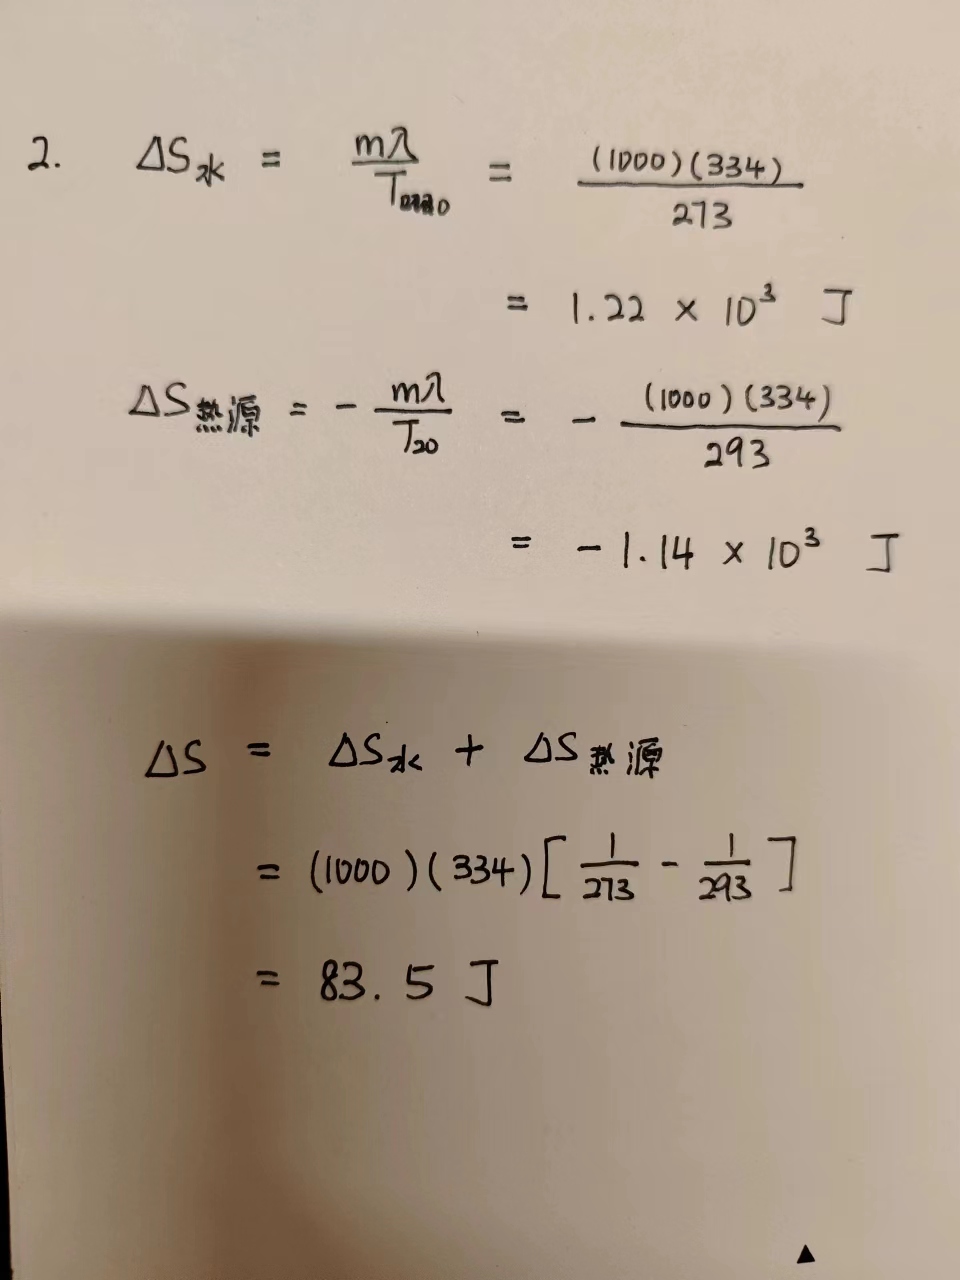 2. ΔS水 = mλ/T0 = (1000)(334)/273
= 1.22 × 10³ J
ΔS热源 = - mλ/T20 = - (1000)(334)/293
= - 1.14 × 10³ J
ΔS = ΔS水 + ΔS热源
= (1000)(334)[1/273 - 1/293]
= 83.5 J